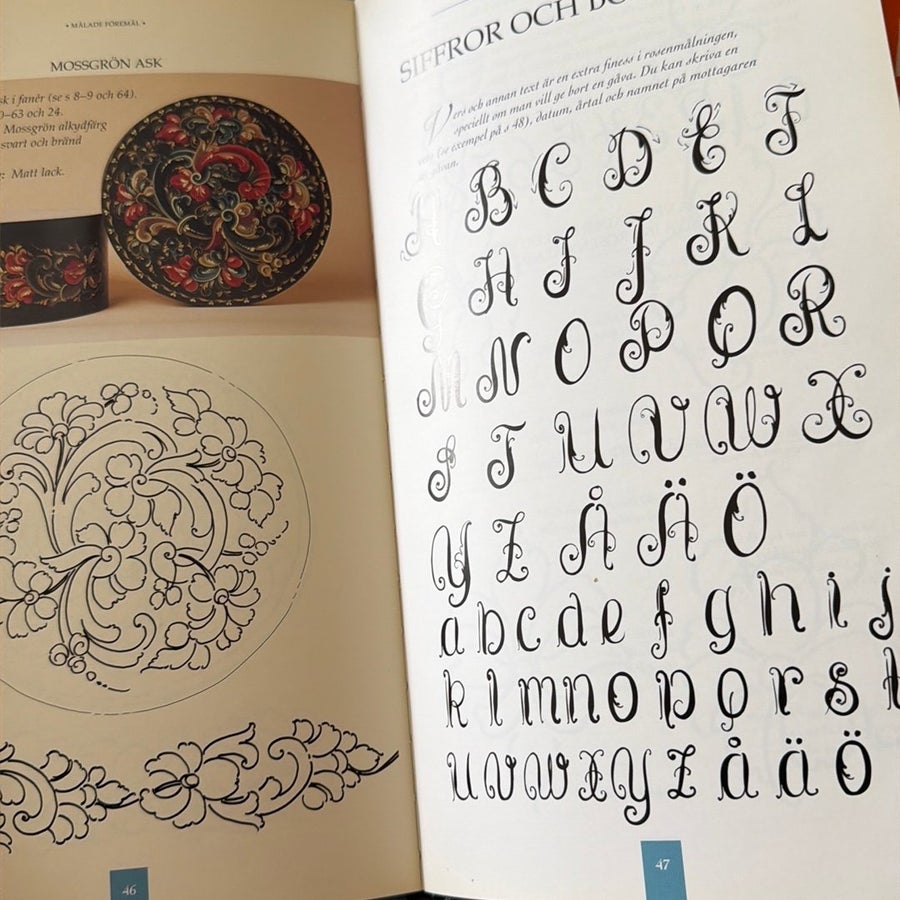 • MÅLADE FÖREMÅL •
MOSSGRÖN ASK
sk i fanér (se s 8–9 och 64).
0–63 och 24.
Mossgrön alkydfärg
svart och bränd
Matt lack.
46
SIFFROR OCH
Vers och annan text är en extra finess i rosenmålningen,
speciellt om man vill ge bort en gåva. Du kan skriva en
vers (se exempel på s 48), datum, årtal och namnet på mottagaren
A B C D E F
G H I J K L
M N O P Q R
S T U V W X
Y Z Å Ä Ö
a b c d e f g h i j
k l m n o p q r s t
u v w x y z å ä ö
47